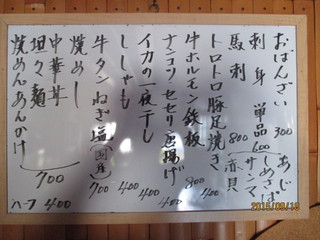 おばんざい 300
刺身 単品 600
あじ
しめさば
サンマ
赤貝
馬刺 800
トロトロ豚足焼き 400
牛ホルモン鉄板 800
ナンコツ・セセリ唐揚げ 400
イカの一夜干し 400
ししゃも 400
牛タンねぎ塩(国産) 700
焼めし
中華丼
坦々麺
焼めんあんかけ
700
ハーフ 400
2015/09/19